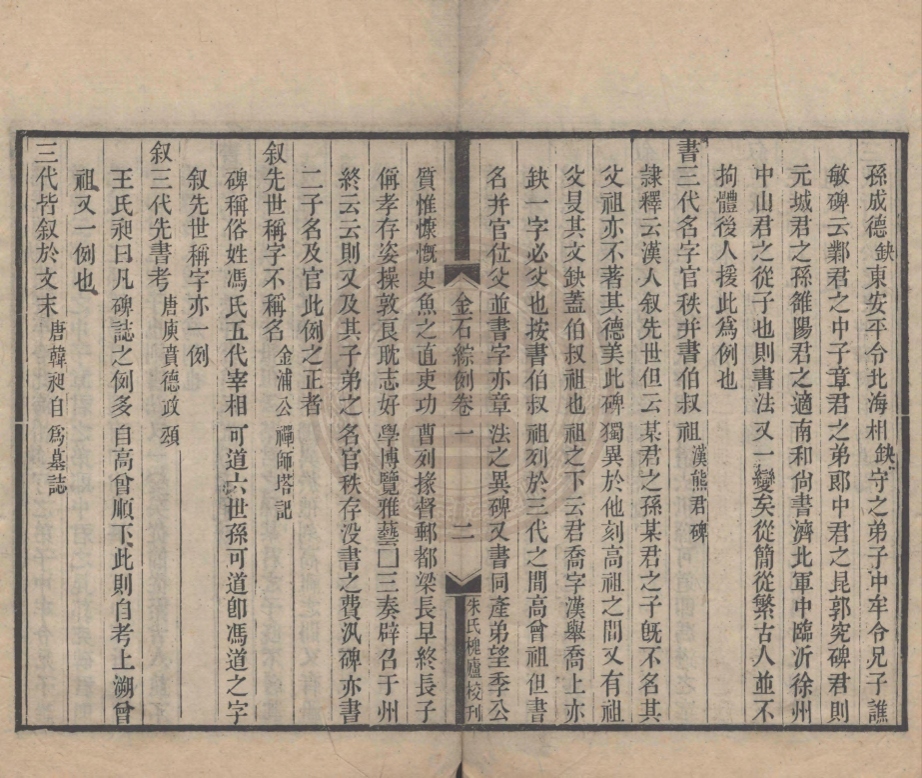 孫成德缺東安平令北海相缺守之弟子中牟令兄子譙
敏碑云鄴君之中子章君之弟郎中君之昆郭究碑君則
元城君之孫雒陽君之適南和尚書濟北軍中臨沂徐州
中山君之從子也則書法又一變矣從簡從繁古人並不
拘體後人援此爲例也
書三代名字官秩并書伯叔祖漢熊君碑
隷釋云漢人叙先世但云某君之孫某君之子旣不名其
父祖亦不著其德美此碑獨異於他刻高祖之間又有祖
父旻其文缺蓋伯叔祖也祖之下云君喬字漢舉喬上亦
缺一字必父也按書伯叔祖列於三代之間高曾祖但書
名并官位父並書字亦章法之異碑又書同產弟望季公
金石綜例卷一 二 朱氏槐廬校刊
質惟慷慨史魚之直吏功曹列掾督郵都梁長早終長子
偁孝存姿操敦良耽志好學博覽雅藝□三奏辟召于州
終云云則又及其子弟之名官秩存没書之費汎碑亦書
二子名及官此例之正者
叙先世稱字不稱名金浦公禪師塔記
碑稱俗姓馮氏五代宰相可道六世孫可道卽馮道之字
叙先世稱字亦一例
叙三代先書考唐庾賁德政頌
王氏昶曰凡碑誌之例多自高曾順下此則自考上溯曾
祖又一例也
三代皆叙於文末唐韓昶自爲墓誌